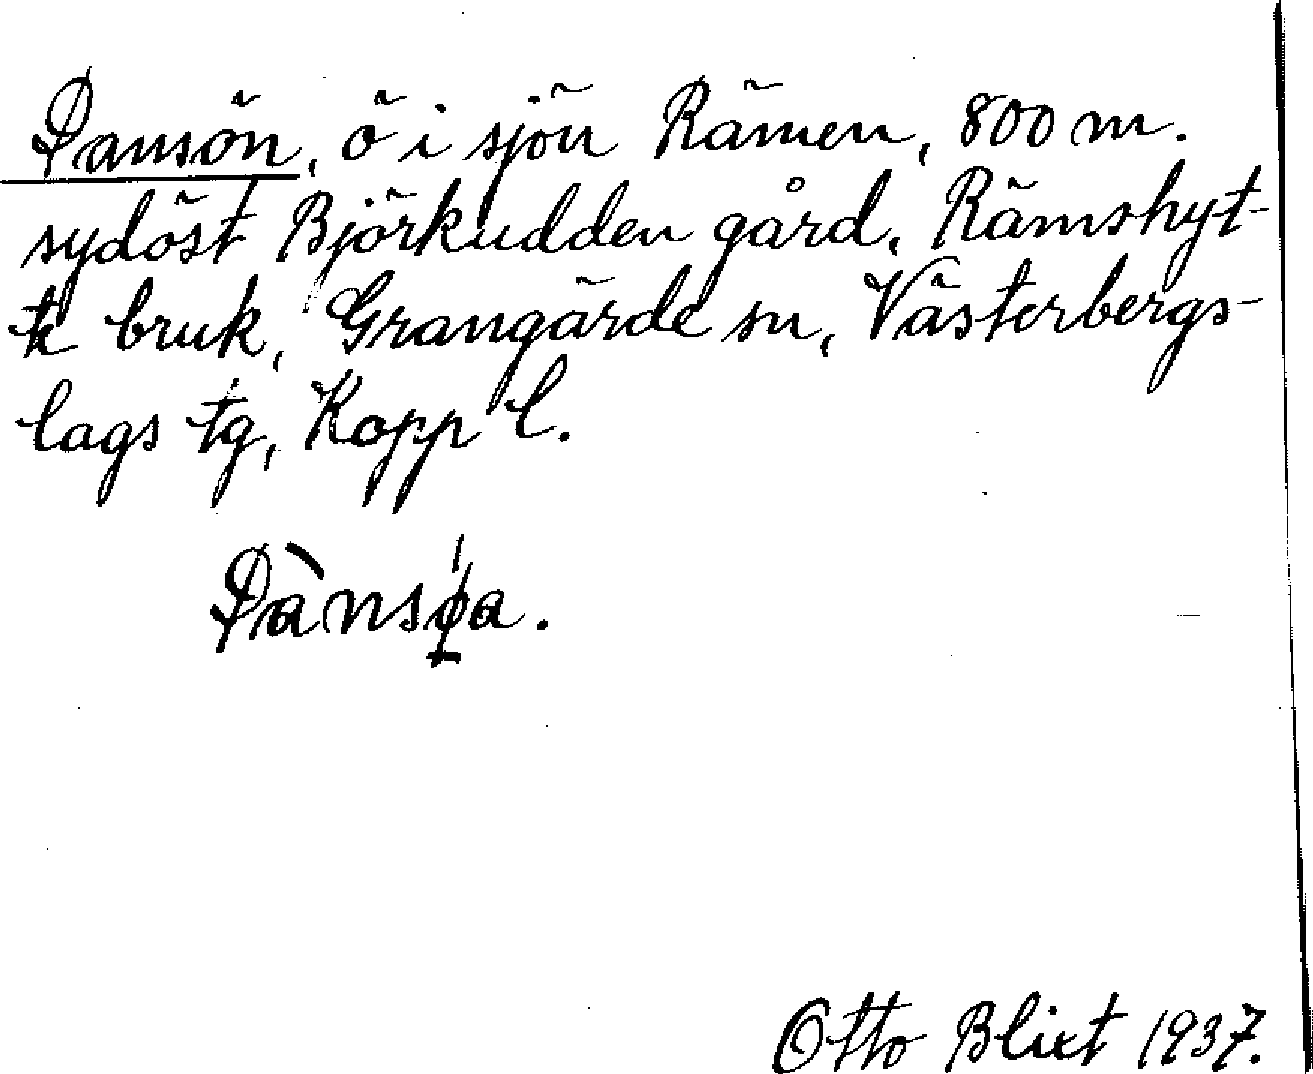 Pansön, ö i sjön Rämen, 800 m.
sydöst Björkudden gård, Rämshyt-
te bruk, Grangärde sn, Västerbergs-
lags tg, Kopp l.
Pànsøa.
Otto Blixt 1937.